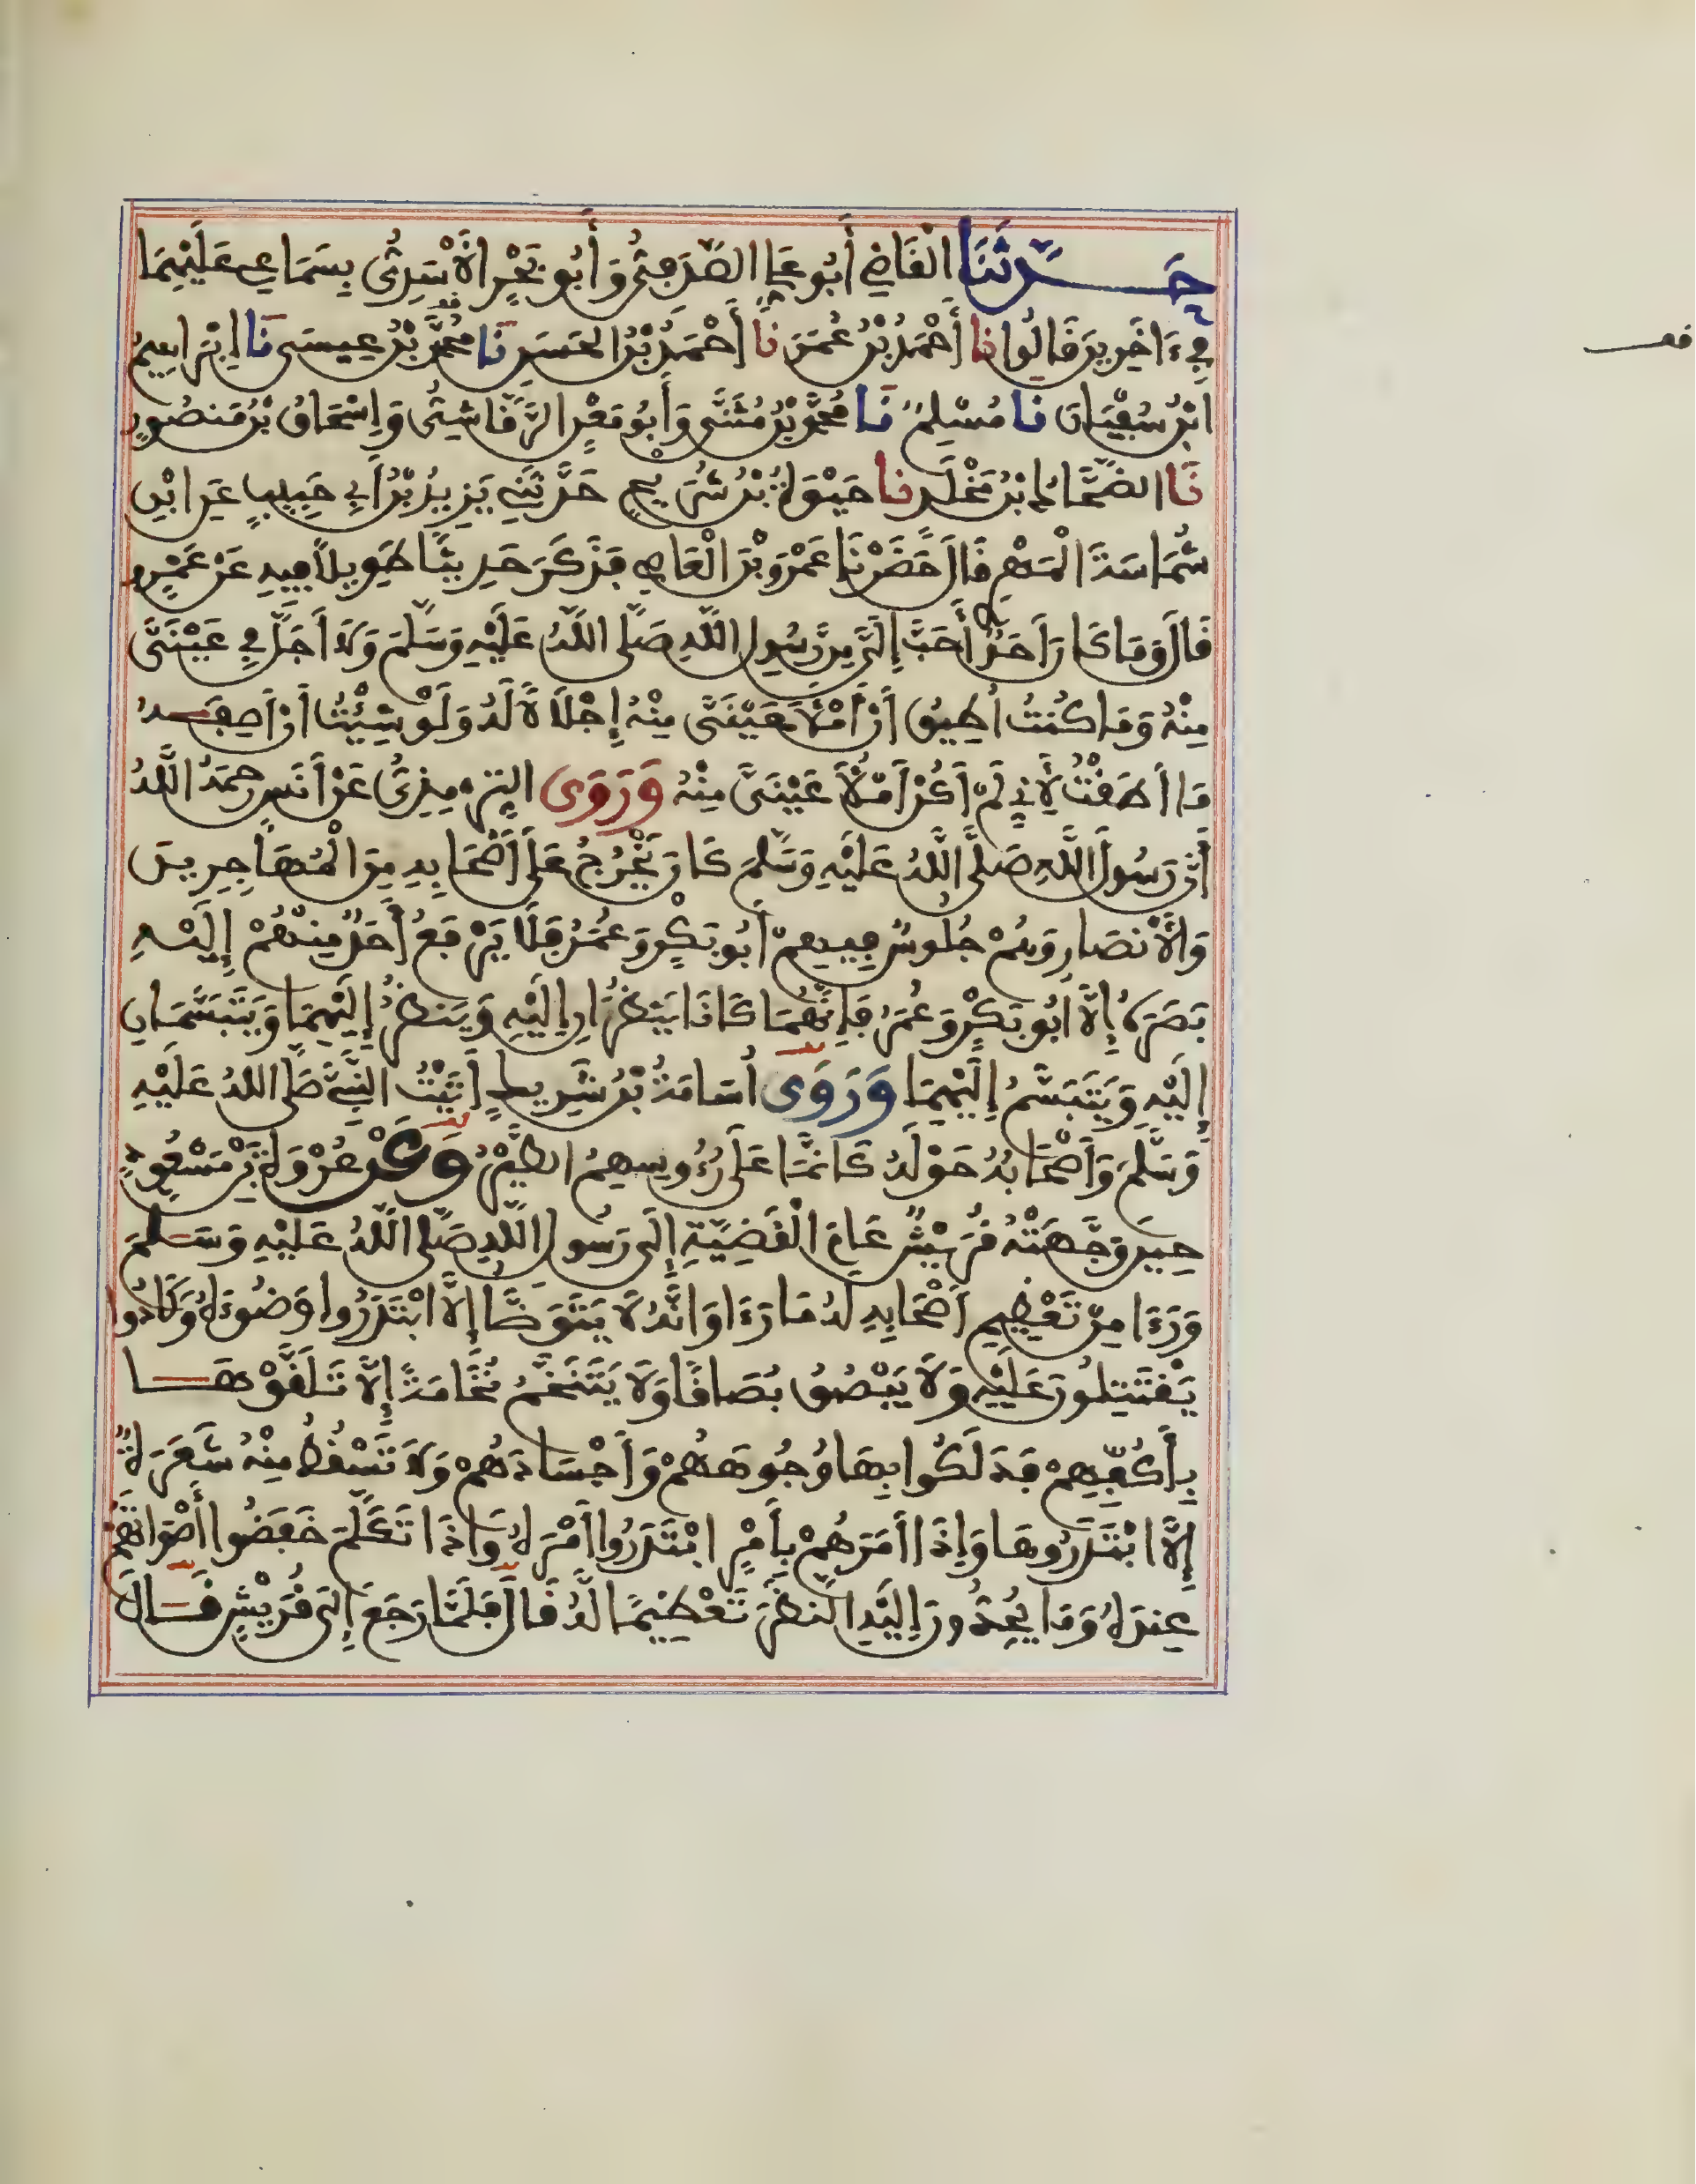 حَدَّثَنَا الْقَاضِي أَبُو عَلِيٍّ الصَّدَفِيُّ وَأَبُو بَحْرٍ الْأَسَدِيُّ بِسَمَاعِي عَلَيْهِمَا
فِي ءَاخَرِينَ قَالُوا نَا أَحْمَدُ بْنُ عُمَرَ نَا أَحْمَدُ بْنُ الْحَسَنِ نَا مُحَمَّدُ بْنُ عِيسَى نَا إِبْرَاهِيمُ
ابْنُ سُفْيَانَ نَا مُسْلِمٌ نَا مُحَمَّدُ بْنُ مُثَنَّى وَأَبُو مَعْنٍ الرَّقَاشِيُّ وَإِسْحَاقُ بْنُ مَنصُورٍ
نَا الضَّحَّاكُ بْنُ مَخْلَدٍ نَا حَيْوَةُ بْنُ شُرَيْحٍ حَدَّثَنِي يَزِيدُ بْنُ أَبِي حَبِيبٍ عَنِ ابْنِ
شُمَاسَةَ الْمَهْرِيِّ قَالَ حَضَرْنَا عَمْرَو بْنَ الْعَاصِي فَذَكَرَ حَدِيثًا طَوِيلًا فِيهِ عَنْ عَمْرٍو
قَالَ وَمَا كَانَ أَحَدٌ أَحَبَّ إِلَيَّ مِن رَّسُولِ اللَّهِ صَلَّى اللَّهُ عَلَيْهِ وَسَلَّمَ وَلَا أَجَلَّ فِي عَيْنَيَّ
مِنْهُ وَمَا كُنتُ أُطِيقُ أَنْ أَمْلَأَ عَيْنَيَّ مِنْهُ إِجْلَالًا لَهُ وَلَوْ شِئْتُ أَنْ أَصِفَهُ
مَا أَطَقْتُ لِأَنِّي لَمْ أَكُنْ أَمْلَأُ عَيْنَيَّ مِنْهُ وَرَوَى التِّرْمِذِيُّ عَنْ أَنَسٍ رَحِمَهُ اللَّهُ
أَنَّ رَسُولَ اللَّهِ صَلَّى اللَّهُ عَلَيْهِ وَسَلَّمَ كَانَ يَخْرُجُ عَلَى أَصْحَابِهِ مِنَ الْمُهَاجِرِينَ
وَالْأَنْصَارِ وَهُمْ جُلُوسٌ فِيهِمْ أَبُو بَكْرٍ وَعُمَرُ فَلَا يَرْفَعُ أَحَدٌ مِنْهُمْ إِلَيْهِ
بَصَرَهُ إِلَّا أَبُو بَكْرٍ وَعُمَرُ فَإِنَّهُمَا كَانَا يَنظُرَانِ إِلَيْهِ وَيَنظُرُ إِلَيْهِمَا وَيَتَبَسَّمَانِ
إِلَيْهِ وَيَتَبَسَّمُ إِلَيْهِمَا وَرَوَى أُسَامَةُ بْنُ شَرِيكٍ أَتَيْتُ النَّبِيَّ صَلَّى اللَّهُ عَلَيْهِ
وَسَلَّمَ وَأَصْحَابُهُ حَوْلَهُ كَأَنَّمَا عَلَى رُءُوسِهِمُ الطَّيْرُ وَعَنْ عُرْوَةَ بْنِ مَسْعُودٍ
حِينَ وَجَّهَتْهُ قُرَيْشٌ عَامَ الْقَضِيَّةِ إِلَى رَسُولِ اللَّهِ صَلَّى اللَّهُ عَلَيْهِ وَسَلَّمَ
وَرَءَا مِنْ تَعْظِيمِ أَصْحَابِهِ لَهُ مَا رَءَا وَأَنَّهُ لَا يَتَوَضَّأُ إِلَّا ابْتَدَرُوا وَضُوءَهُ وَكَادُوا
يَقْتَتِلُونَ عَلَيْهِ وَلَا يَبْصُقُ بُصَاقًا وَلَا يَتَنَخَّمُ نُخَامَةً إِلَّا تَلَقَّوْهَا
بِأَكُفِّهِمْ فَدَلَكُوا بِهَا وُجُوهَهُمْ وَأَجْسَادَهُمْ وَلَا تَسْقُطُ مِنْهُ شَعَرَةٌ
إِلَّا ابْتَدَرُوهَا وَإِذَا أَمَرَهُمْ بِأَمْرٍ ابْتَدَرُوا أَمْرَهُ وَإِذَا تَكَلَّمَ خَفَضُوا أَصْوَاتَهُمْ
عِندَهُ وَمَا يُحِدُّونَ إِلَيْهِ النَّظَرَ تَعْظِيمًا لَهُ قَالَ فَلَمَّا رَجَعَ إِلَى قُرَيْشٍ قَالَ